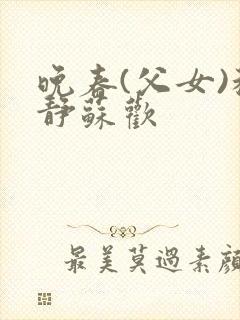 晚春(父女)
靜蘇歡
最美莫過素顏